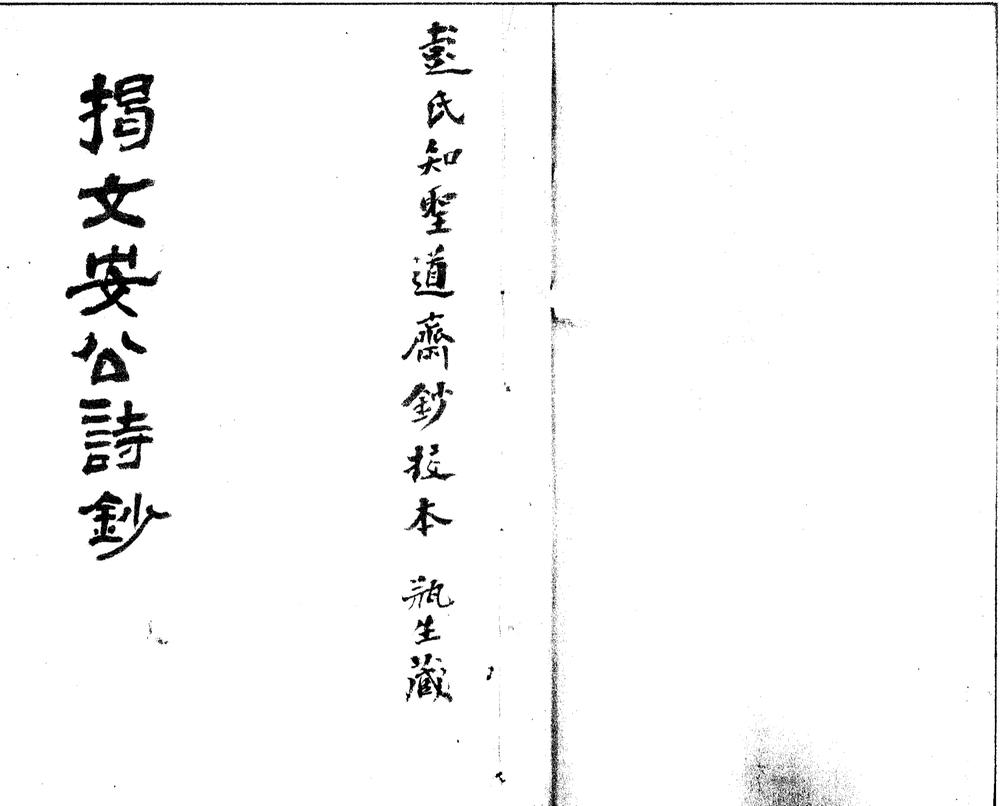 彭氏知聖道齋鈔校本 瓶生藏
揭文安公詩鈔